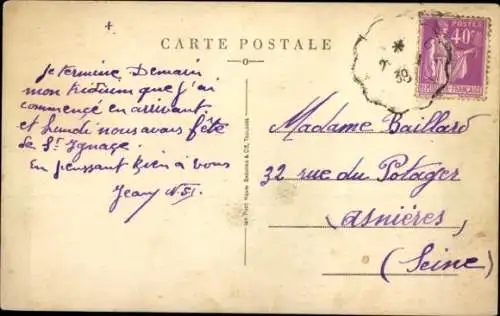 CARTE POSTALE
je termine Demain
mon Tridium que j'ai
commencé en arrivant
et Lundi nous avons fête
de St Ignace.
En pensant bien à vous
Jean
Madame Baillard
32 rue du Potager
Asnières
(Seine)
POSTES
40c
39